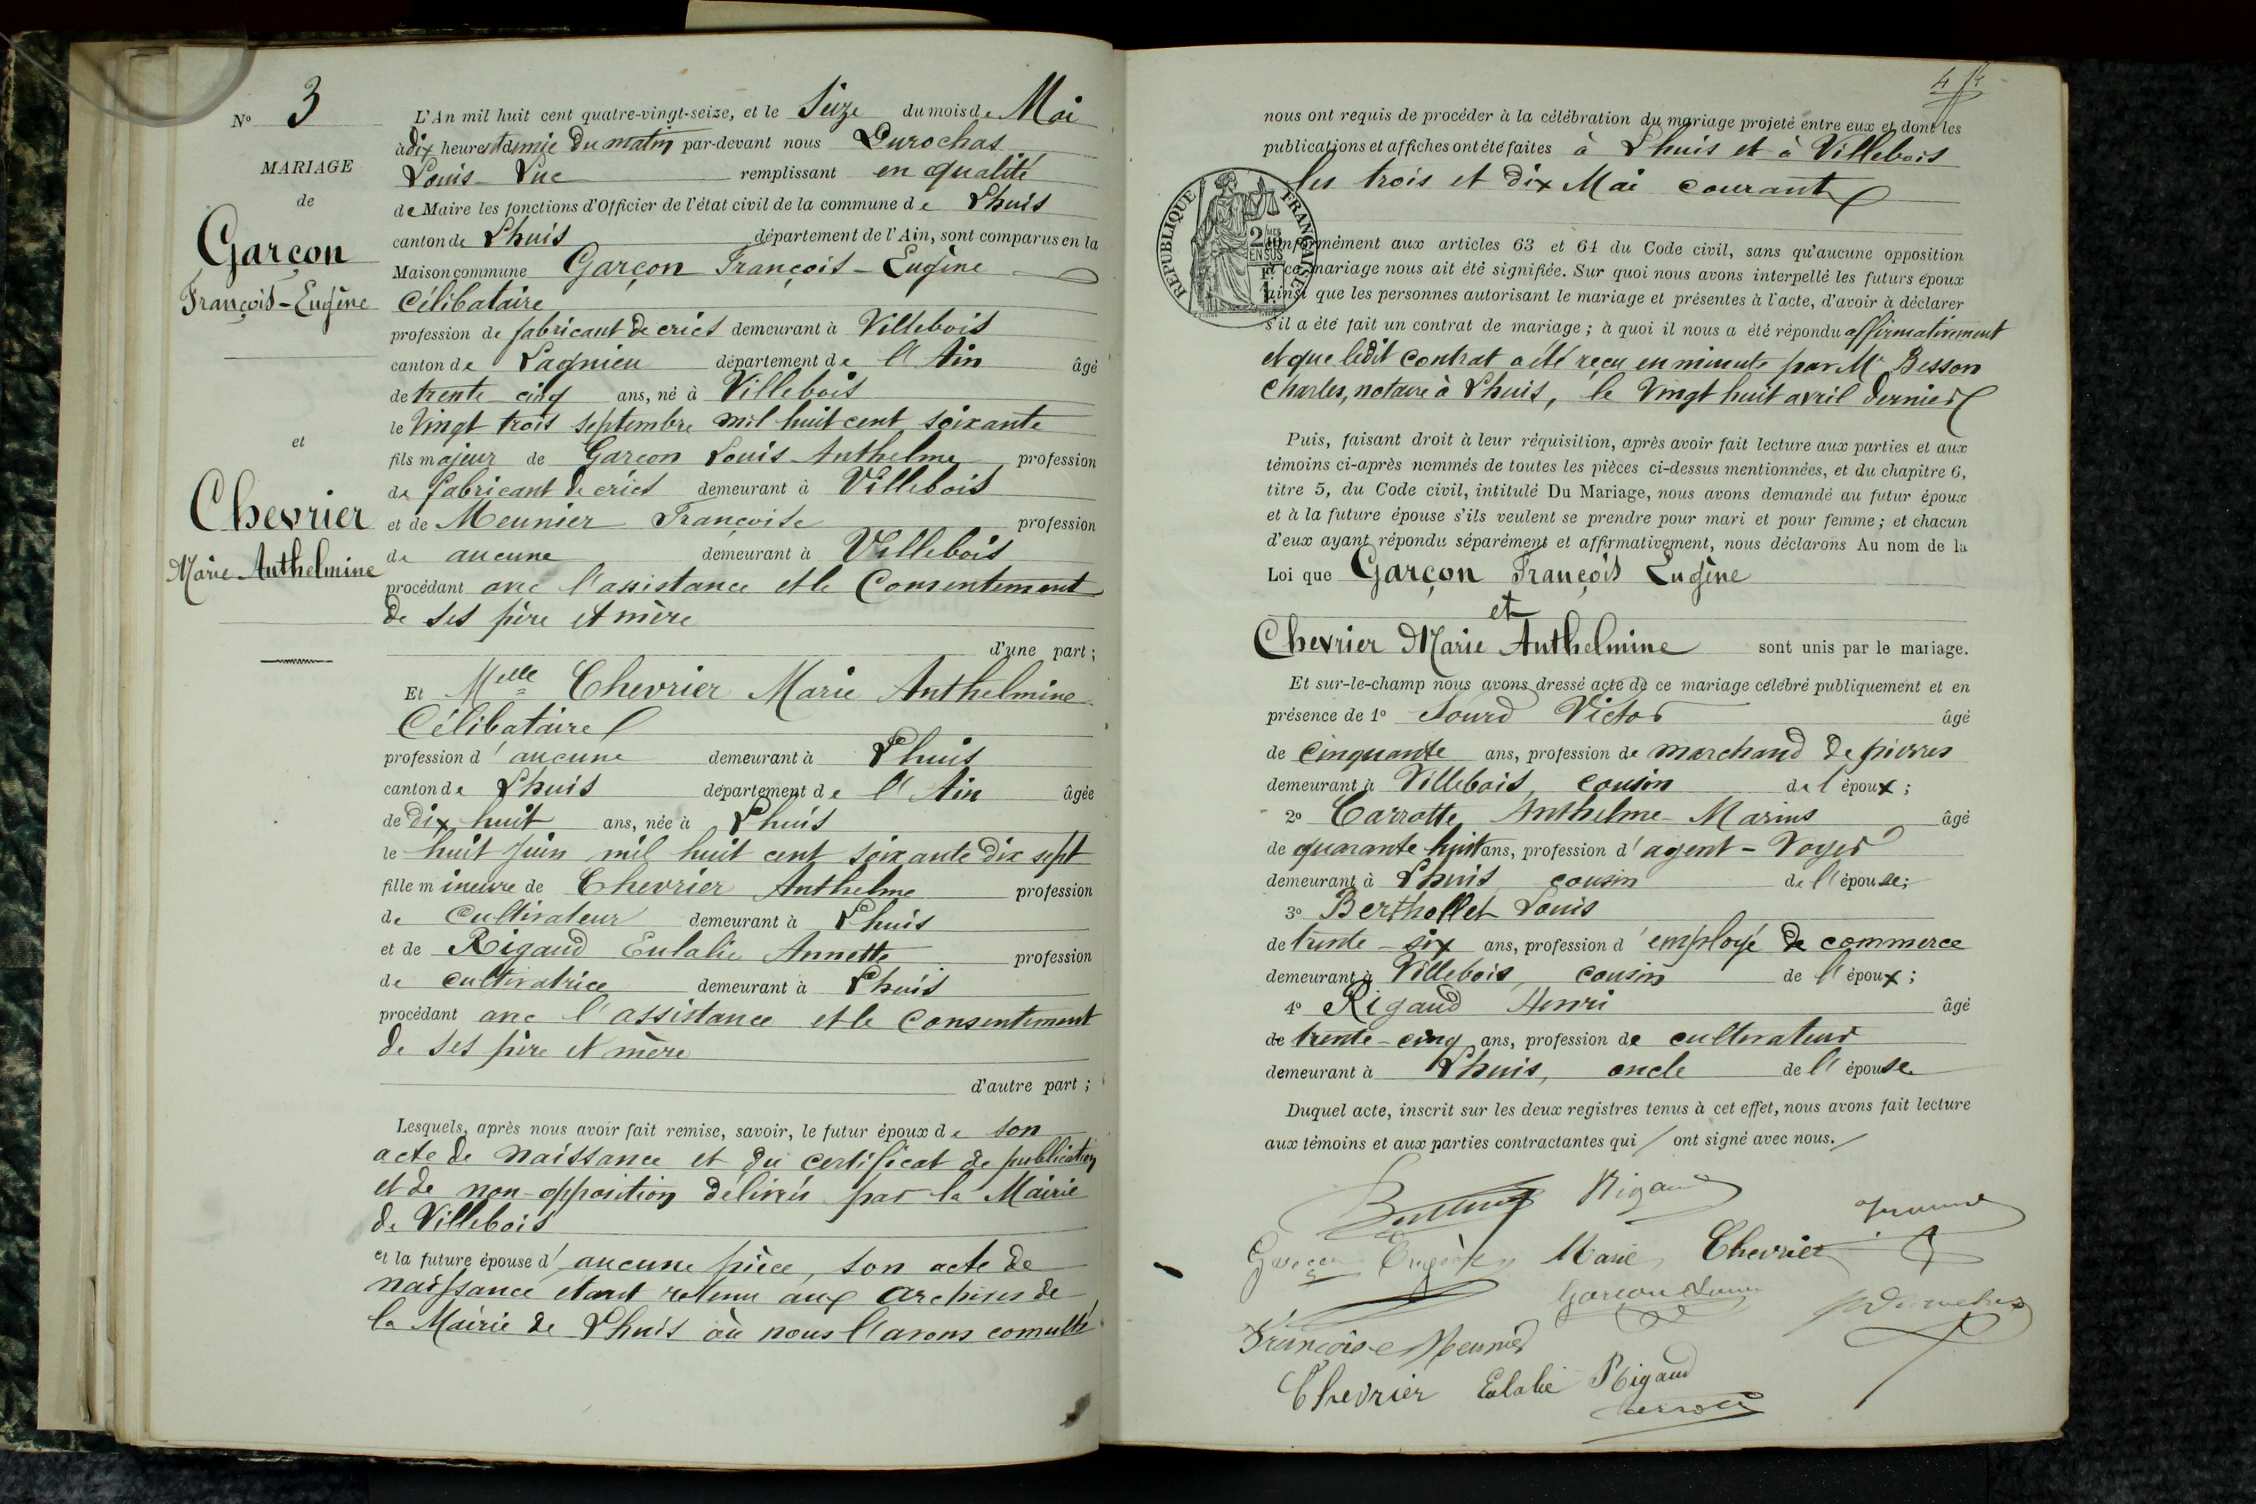 Nº 3
MARIAGE
de
Garçon
François-Eugène
et
Chevrier
Marie Anthelmine
L'An mil huit cent quatre-vingt-seize, et le Seize du mois de Mai
à dix heures et demie du matin par-devant nous Durochas
Louis Luc remplissant en qualité
de Maire les fonctions d'Officier de l'état civil de la commune de Lhuis
canton de Lhuis département de l'Ain, sont comparus en la
Maison commune Garçon François-Eugène
Célibataire
profession de fabricant de crics demeurant à Villebois
canton de Lagnieu département de l'Ain âgé
de trente cinq ans, né à Villebois
le Vingt trois septembre mil huit cent soixante
fils majeur de Garçon Louis Anthelme profession
de fabricant de crics demeurant à Villebois
et de Meunier Françoise profession
de aucune demeurant à Villebois
procédant avec l'assistance et le Consentement
de ses père et mère
d'une part ;
Et Melle Chevrier Marie Anthelmine
Célibataire
profession d'aucune demeurant à Lhuis
canton de Lhuis département de l'Ain âgée
de dix huit ans, née à Lhuis
le huit Juin mil huit cent soixante dix sept
fille mineure de Chevrier Anthelme profession
de Cultivateur demeurant à Lhuis
et de Rigaud Eulalie Annette profession
de cultivatrice demeurant à Lhuis
procédant avec l'assistance et le Consentement
de ses père et mère
d'autre part ;
Lesquels, après nous avoir fait remise, savoir, le futur époux de son
acte de naissance et du certificat de publication
et de non-opposition délivrés par la Mairie
de Villebois
et la future épouse d'aucune pièce, son acte de
naissance étant retenu aux archives de
la Mairie de Lhuis où nous l'avons consulté
4
nous ont requis de procéder à la célébration du mariage projeté entre eux et dont les
publications et affiches ont été faites à Lhuis et à Villebois
les trois et dix Mai courant
RÉPUBLIQUE FRANÇAISE
conformément aux articles 63 et 64 du Code civil, sans qu'aucune opposition
à ce mariage nous ait été signifiée. Sur quoi nous avons interpellé les futurs époux
ainsi que les personnes autorisant le mariage et présentes à l'acte, d'avoir à déclarer
s'il a été fait un contrat de mariage ; à quoi il nous a été répondu affirmativement
et que ledit contrat a été reçu en minute par Me Besson
Charles, notaire à Lhuis, le Vingt huit avril dernier
Puis, faisant droit à leur réquisition, après avoir fait lecture aux parties et aux
témoins ci-après nommés de toutes les pièces ci-dessus mentionnées, et du chapitre 6,
titre 5, du Code civil, intitulé Du Mariage, nous avons demandé au futur époux
et à la future épouse s'ils veulent se prendre pour mari et pour femme ; et chacun
d'eux ayant répondu séparément et affirmativement, nous déclarons Au nom de la
Loi que Garçon François Eugène
et
Chevrier Marie Anthelmine sont unis par le mariage.
Et sur-le-champ nous avons dressé acte de ce mariage célébré publiquement et en
présence de 1º Sourd Victor âgé
de Cinquante ans, profession de marchand de pierres
demeurant à Villebois, cousin de l'époux ;
2º Carrotte Anthelme-Marius âgé
de quarante huit ans, profession d'agent-Voyer
demeurant à Lhuis cousin de l'épouse ;
3º Berthollet Louis
de trente-six ans, profession d'employé de commerce
demeurant à Villebois, cousin de l'époux ;
4º Rigaud Henri âgé
de trente-cinq ans, profession de cultivateur
demeurant à Lhuis, oncle de l'épouse
Duquel acte, inscrit sur les deux registres tenus à cet effet, nous avons fait lecture
aux témoins et aux parties contractantes qui ont signé avec nous.
Rigaud
Garçon Eugène Marie Chevrier
Garçon Louis
Françoise Meunier
Chevrier Eulalie Rigaud